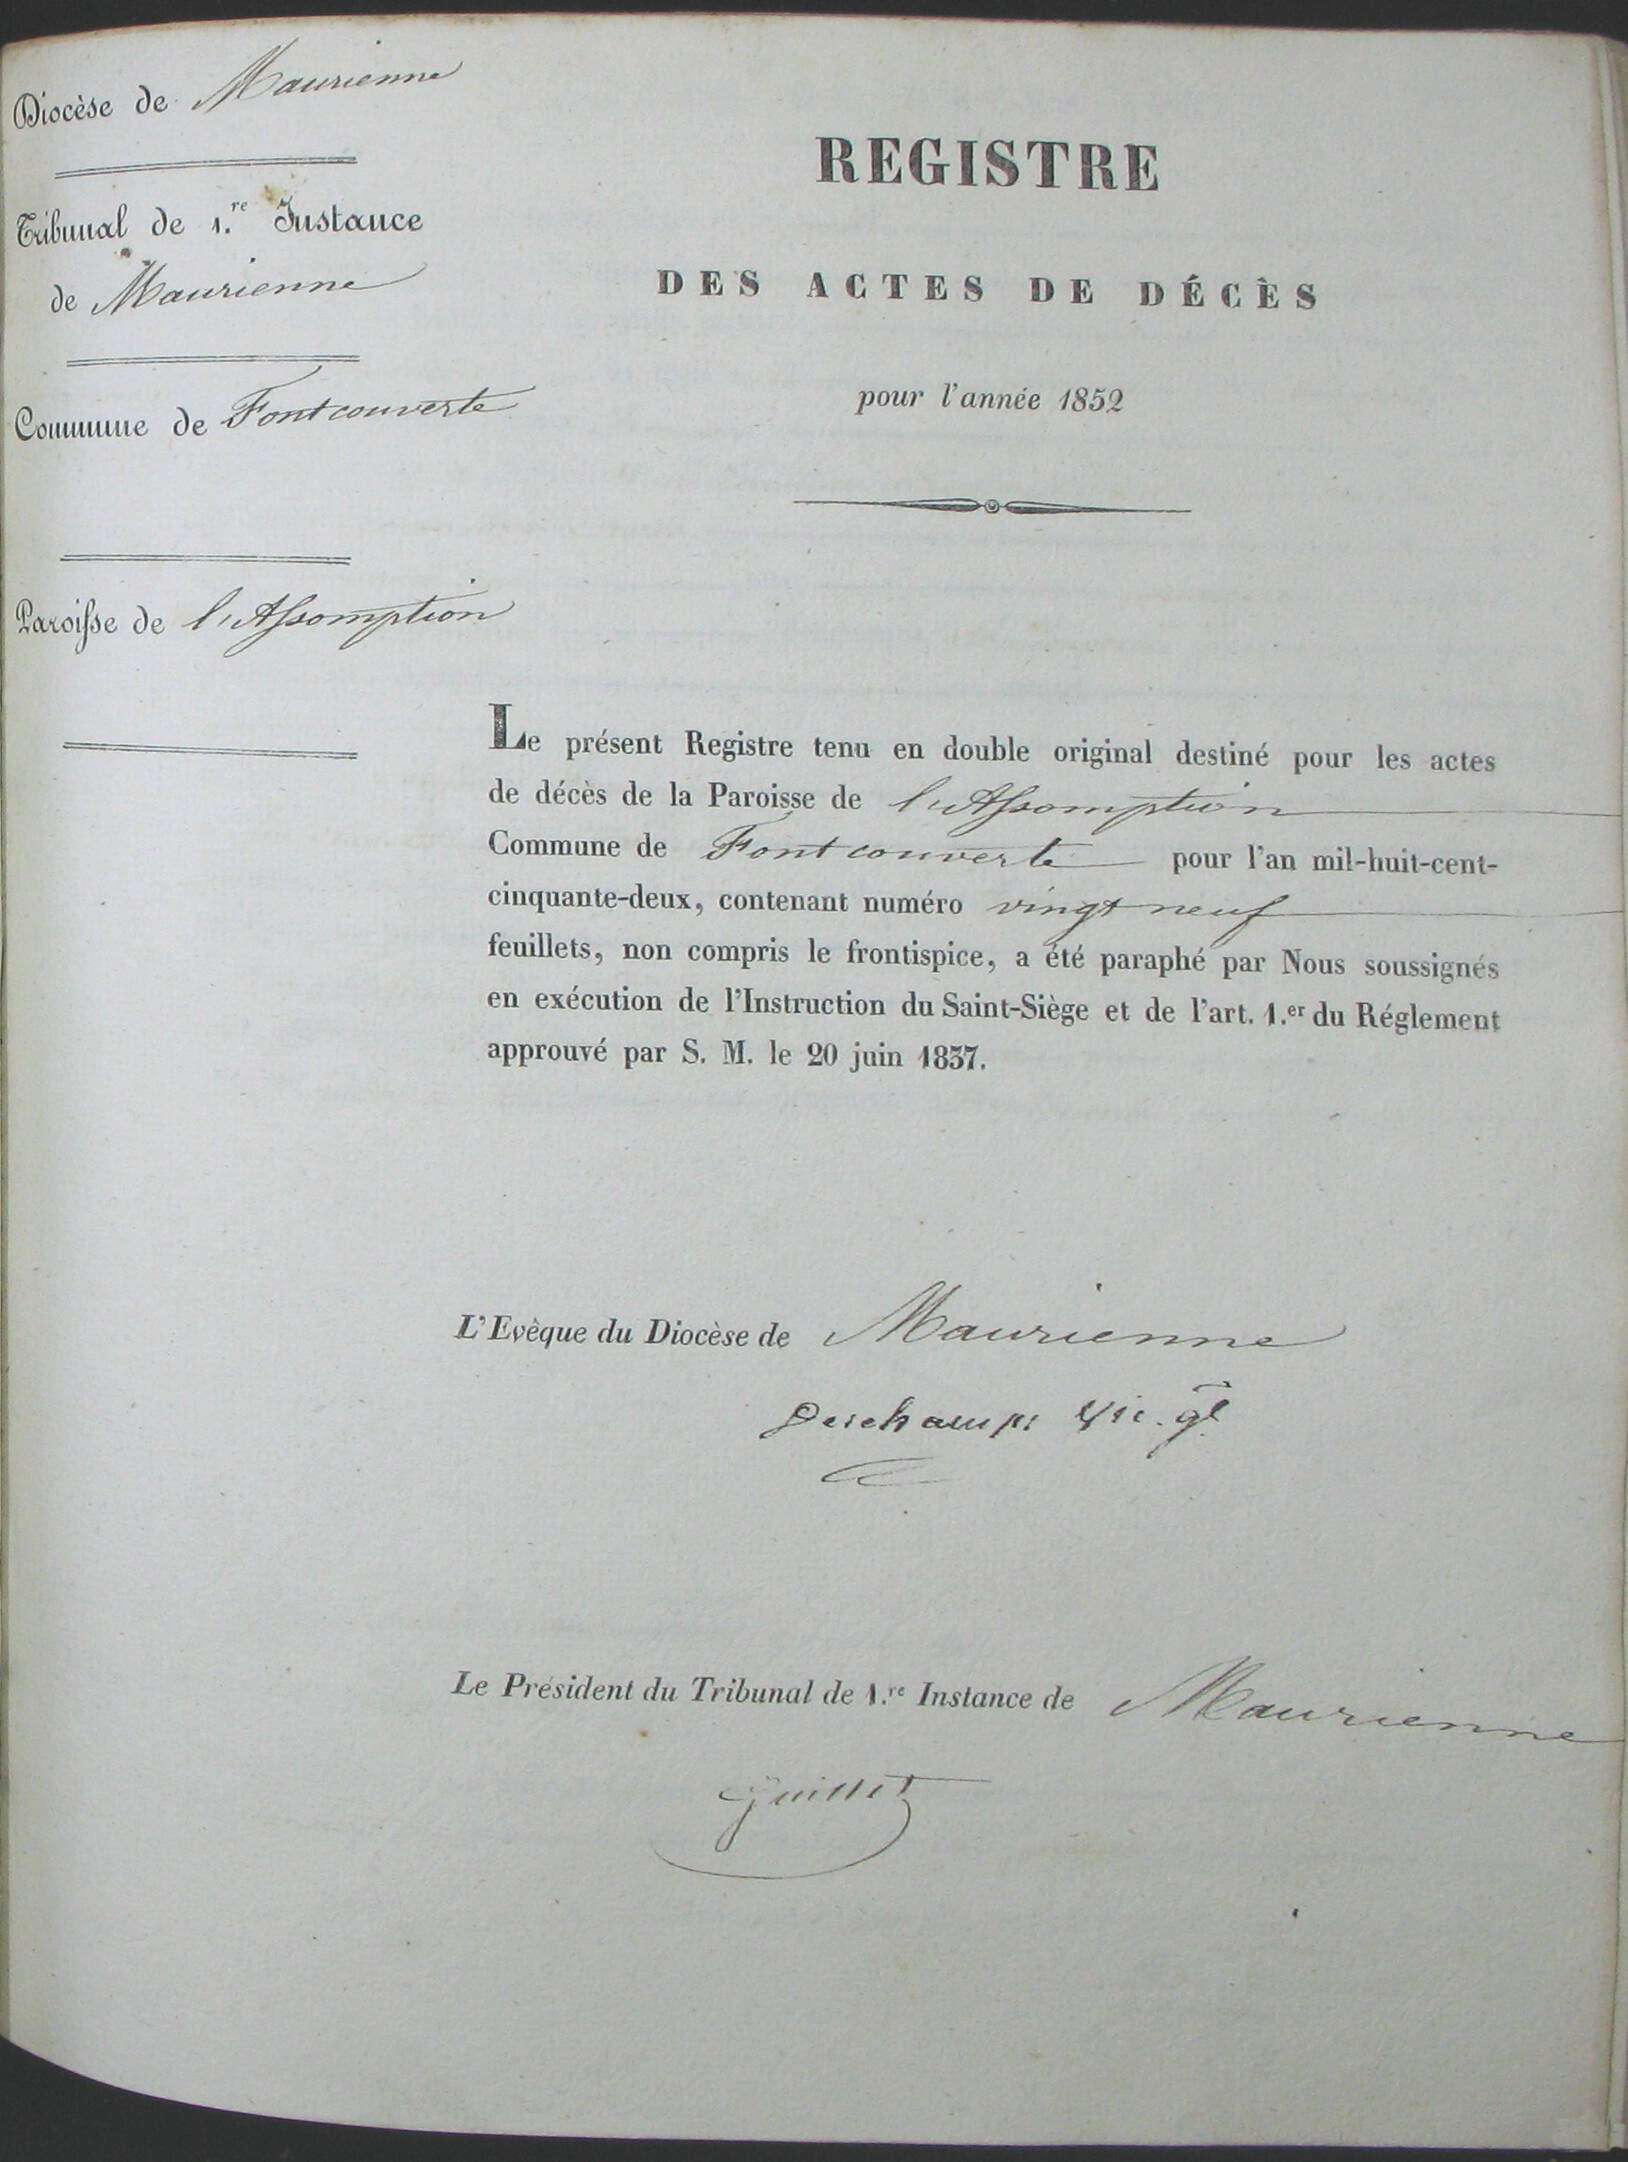 Diocèse de Maurienne
Tribunal de 1.re Instance
de Maurienne
Commune de Fontcouverte
Paroisse de l'Assomption
REGISTRE
DES ACTES DE DÉCÈS
pour l'année 1852
Le présent Registre tenu en double original destiné pour les actes
de décès de la Paroisse de l'Assomption
Commune de Fontcouverte pour l'an mil-huit-cent-
cinquante-deux, contenant numéro vingt neuf
feuillets, non compris le frontispice, a été paraphé par Nous soussignés
en exécution de l'Instruction du Saint-Siège et de l'art. 1.er du Réglement
approuvé par S. M. le 20 juin 1837.
L'Evèque du Diocèse de Maurienne
Deschamps Vic. gl
Le Président du Tribunal de 1.re Instance de Maurienne
Guillet